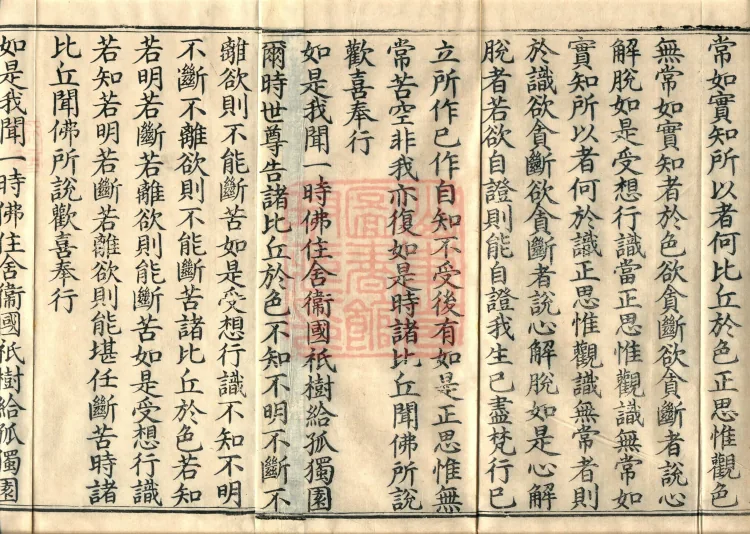 常如實知所以者何比丘於色正思惟觀色
無常如實知者於色欲貪斷欲貪斷者說心
解脫如是受想行識當正思惟觀識無常如
實知所以者何於識正思惟觀識無常者則
於識欲貪斷欲貪斷者說心解脫如是心解
脫者若欲自證則能自證我生已盡梵行已
立所作已作自知不受後有如是正思惟無
常苦空非我亦復如是時諸比丘聞佛所說
歡喜奉行
如是我聞一時佛住舍衞國祇樹給孤獨園
爾時世尊告諸比丘於色不知不明不斷不
離欲則不能斷苦如是受想行識不知不明
不斷不離欲則不能斷苦諸比丘於色若知
若明若斷若離欲則能斷苦如是受想行識
若知若明若斷若離欲則能堪任斷苦時諸
比丘聞佛所說歡喜奉行
如是我聞一時佛住舍衞國祇樹給孤獨園